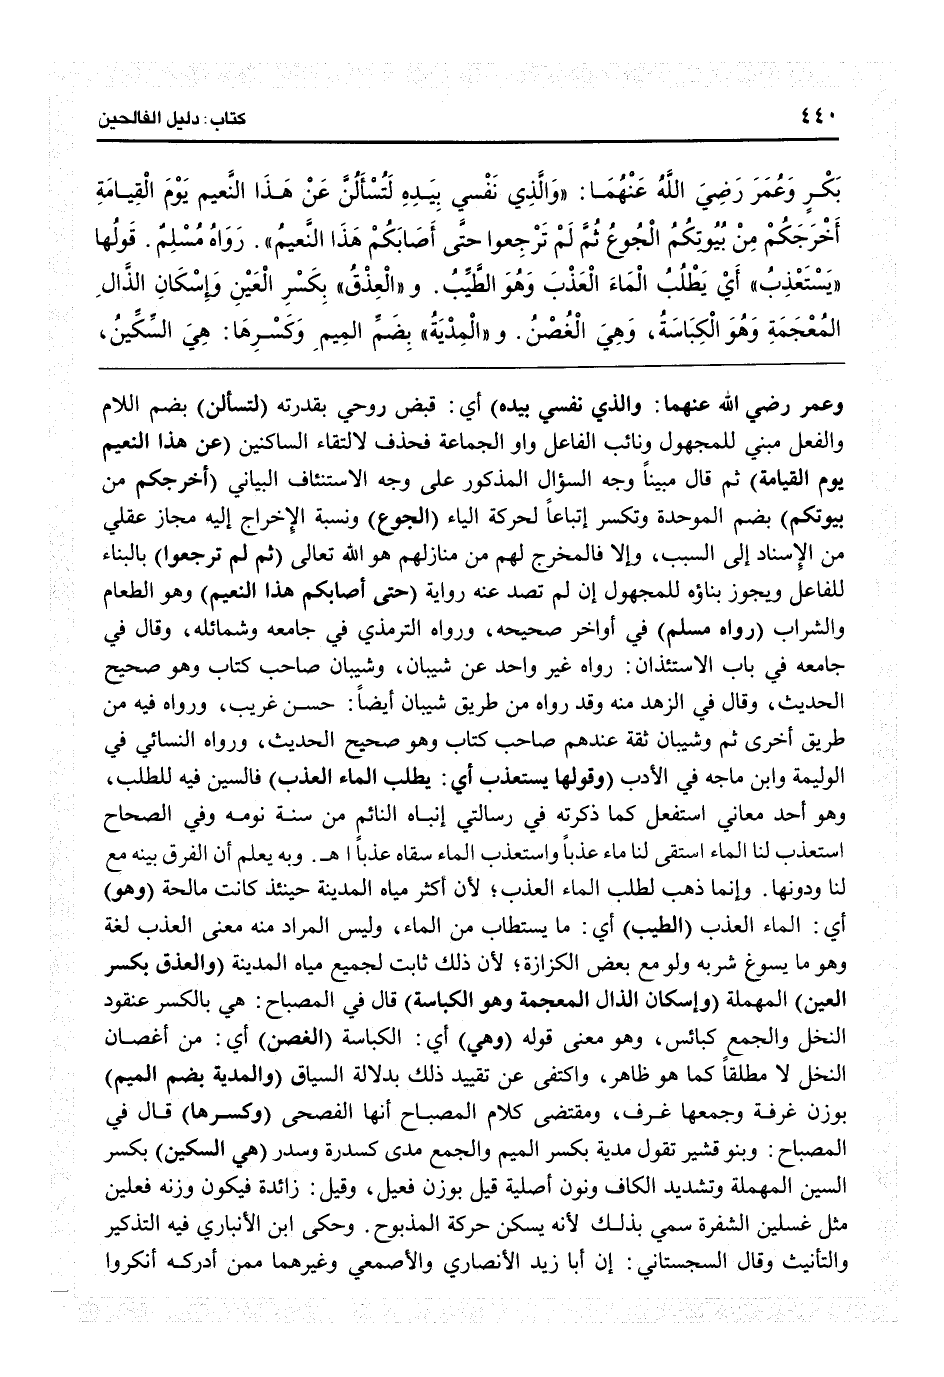 ٤٤٠
كتاب: دليل الفالحين
بَكْرٍ وَعُمَرَ رَضِيَ اللَّهُ عَنْهُمَا: «وَالَّذِي نَفْسي بِيَدِهِ لَتُسْأَلُنَّ عَنْ هَذَا النَّعيم يَوْمَ الْقِيامَةِ
أَخْرَجَكُمْ مِنْ بُيُوتِكُمُ الْجُوعُ ثُمَّ لَمْ تَرْجِعوا حتَّى أَصَابَكُمْ هَذَا النَّعيمُ». رَوَاهُ مُسْلِمٌ. قَولُها
«يَسْتَعْذِبُ» أَيْ يَطْلُبُ الْمَاءَ الْعَذْبَ وَهُوَ الطَّيِّبُ. و «الْعِذْقُ» بِكَسْرِ الْعَيْنِ وَإِسْكَانِ الذَّالِ
الْمُعْجَمَةِ وَهُوَ الْكِبَاسَةُ، وَهِيَ الْغُصْنُ. و «الْمِدْيَةُ» بِضَمِّ الميمِ وَكَسْرِهَا: هِيَ السِّكِّينُ،
وعمر رضي الله عنهما: والذي نفسي بيده) أي: قبض روحي بقدرته (لتسألن) بضم اللام
والفعل مبني للمجهول ونائب الفاعل واو الجماعة فحذف لالتقاء الساكنين (عن هذا النعيم
يوم القيامة) ثم قال مبيناً وجه السؤال المذكور على وجه الاستئناف البياني (أخرجكم من
بيوتكم) بضم الموحدة وتكسر إتباعاً لحركة الياء (الجوع) ونسبة الإخراج إليه مجاز عقلي
من الإسناد إلى السبب، وإلا فالمخرج لهم من منازلهم هو الله تعالى (ثم لم ترجعوا) بالبناء
للفاعل ويجوز بناؤه للمجهول إن لم تصد عنه رواية (حتى أصابكم هذا النعيم) وهو الطعام
والشراب (رواه مسلم) في أواخر صحيحه، ورواه الترمذي في جامعه وشمائله، وقال في
جامعه في باب الاستئذان: رواه غير واحد عن شيبان، وشيبان صاحب كتاب وهو صحيح
الحديث، وقال في الزهد منه وقد رواه من طريق شيبان أيضاً: حسن غريب، ورواه فيه من
طريق أخرى ثم وشيبان ثقة عندهم صاحب كتاب وهو صحيح الحديث، ورواه النسائي في
الوليمة وابن ماجه في الأدب (وقولها يستعذب أي: يطلب الماء العذب) فالسين فيه للطلب،
وهو أحد معاني استفعل كما ذكرته في رسالتي إنباه النائم من سنة نومه وفي الصحاح
استعذب لنا الماء استقى لنا ماء عذباً واستعذب الماء سقاه عذباً ا هـ. وبه يعلم أن الفرق بينه مع
لنا ودونها. وإنما ذهب لطلب الماء العذب؛ لأن أكثر مياه المدينة حينئذ كانت مالحة (وهو)
أي: الماء العذب (الطيب) أي: ما يستطاب من الماء، وليس المراد منه معنى العذب لغة
وهو ما يسوغ شربه ولو مع بعض الكزازة؛ لأن ذلك ثابت لجميع مياه المدينة (والعذق بكسر
العين) المهملة (وإسكان الذال المعجمة وهو الكباسة) قال في المصباح: هي بالكسر عنقود
النخل والجمع كبائس، وهو معنى قوله (وهي) أي: الكباسة (الغصن) أي: من أغصان
النخل لا مطلقاً كما هو ظاهر، واكتفى عن تقييد ذلك بدلالة السياق (والمدية بضم الميم)
بوزن غرفة وجمعها غرف، ومقتضى كلام المصباح أنها الفصحى (وكسرها) قال في
المصباح: وبنو قشير تقول مدية بكسر الميم والجمع مدى كسدرة وسدر (هي السكين) بكسر
السين المهملة وتشديد الكاف ونون أصلية قيل بوزن فعيل، وقيل: زائدة فيكون وزنه فعلين
مثل غسلين الشفرة سمي بذلك لأنه يسكن حركة المذبوح. وحكى ابن الأنباري فيه التذكير
والتأنيث وقال السجستاني: إن أبا زيد الأنصاري والأصمعي وغيرهما ممن أدركه أنكروا